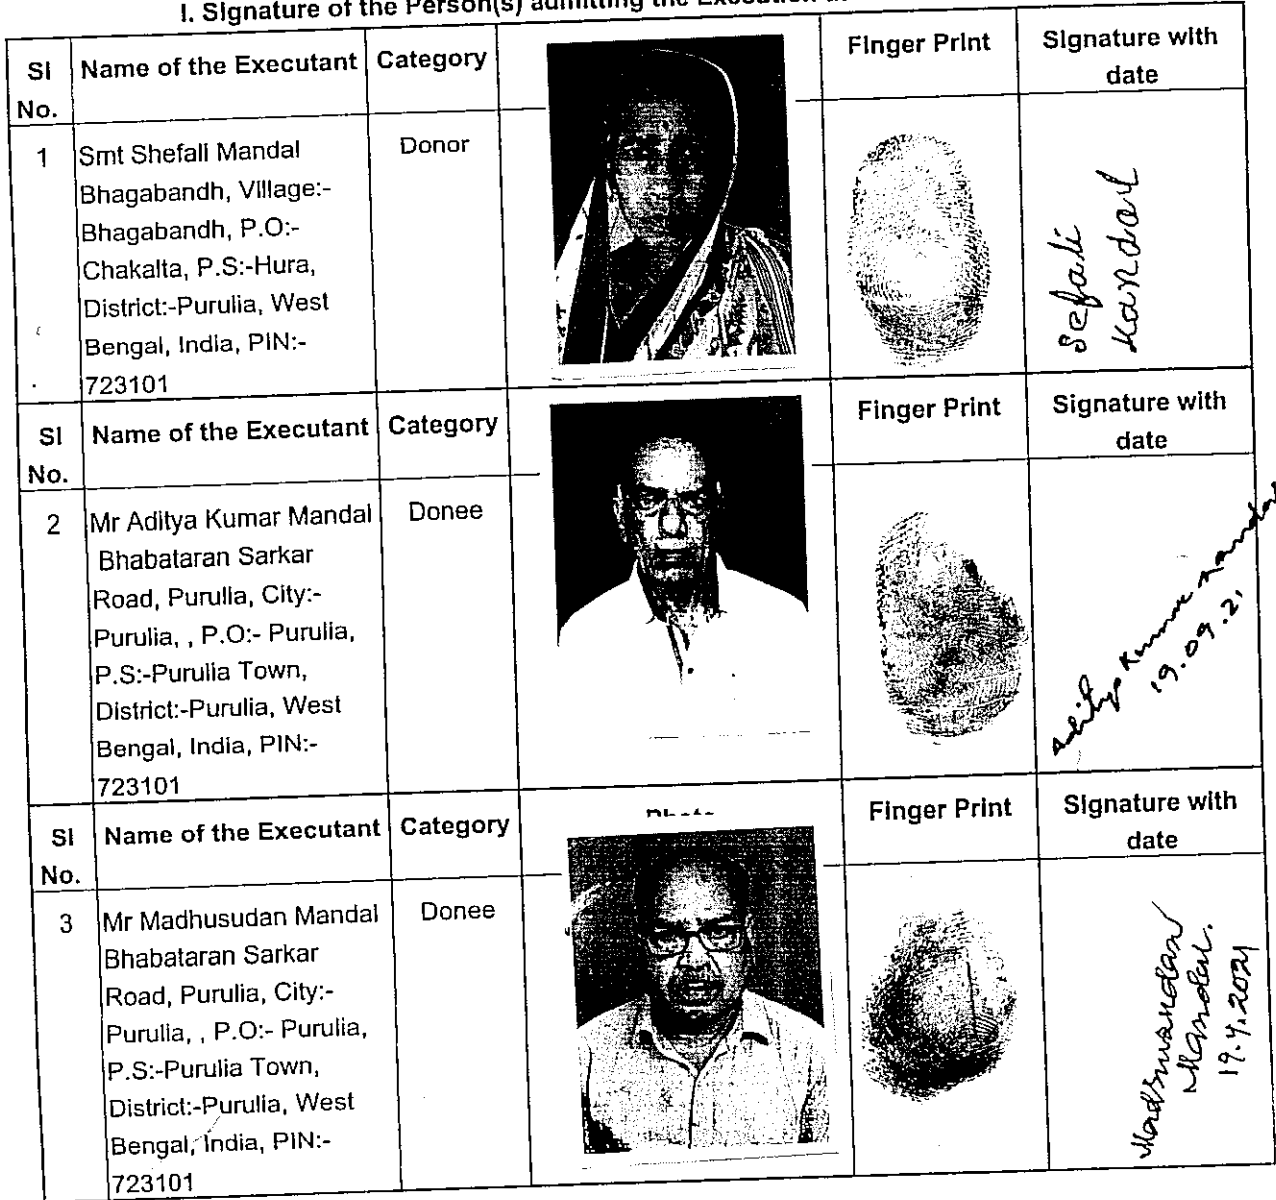 I. Signature of the Person(s) admitting the Execution
SI No. Name of the Executant Category Finger Print Signature with date
1 Smt Shefali Mandal Donor
Bhagabandh, Village:-
Bhagabandh, P.O:-
Chakalta, P.S:-Hura,
District:-Purulia, West
Bengal, India, PIN:-
723101
Sefali
Mandal
SI No. Name of the Executant Category Finger Print Signature with date
2 Mr Aditya Kumar Mandal Donee
Bhabataran Sarkar
Road, Purulia, City:-
Purulia, , P.O:- Purulia,
P.S:-Purulia Town,
District:-Purulia, West
Bengal, India, PIN:-
723101
Aditya Kumar Mandal
19.09.21
SI No. Name of the Executant Category Finger Print Signature with date
3 Mr Madhusudan Mandal Donee
Bhabataran Sarkar
Road, Purulia, City:-
Purulia, , P.O:- Purulia,
P.S:-Purulia Town,
District:-Purulia, West
Bengal, India, PIN:-
723101
Mandal.
19.4.2021